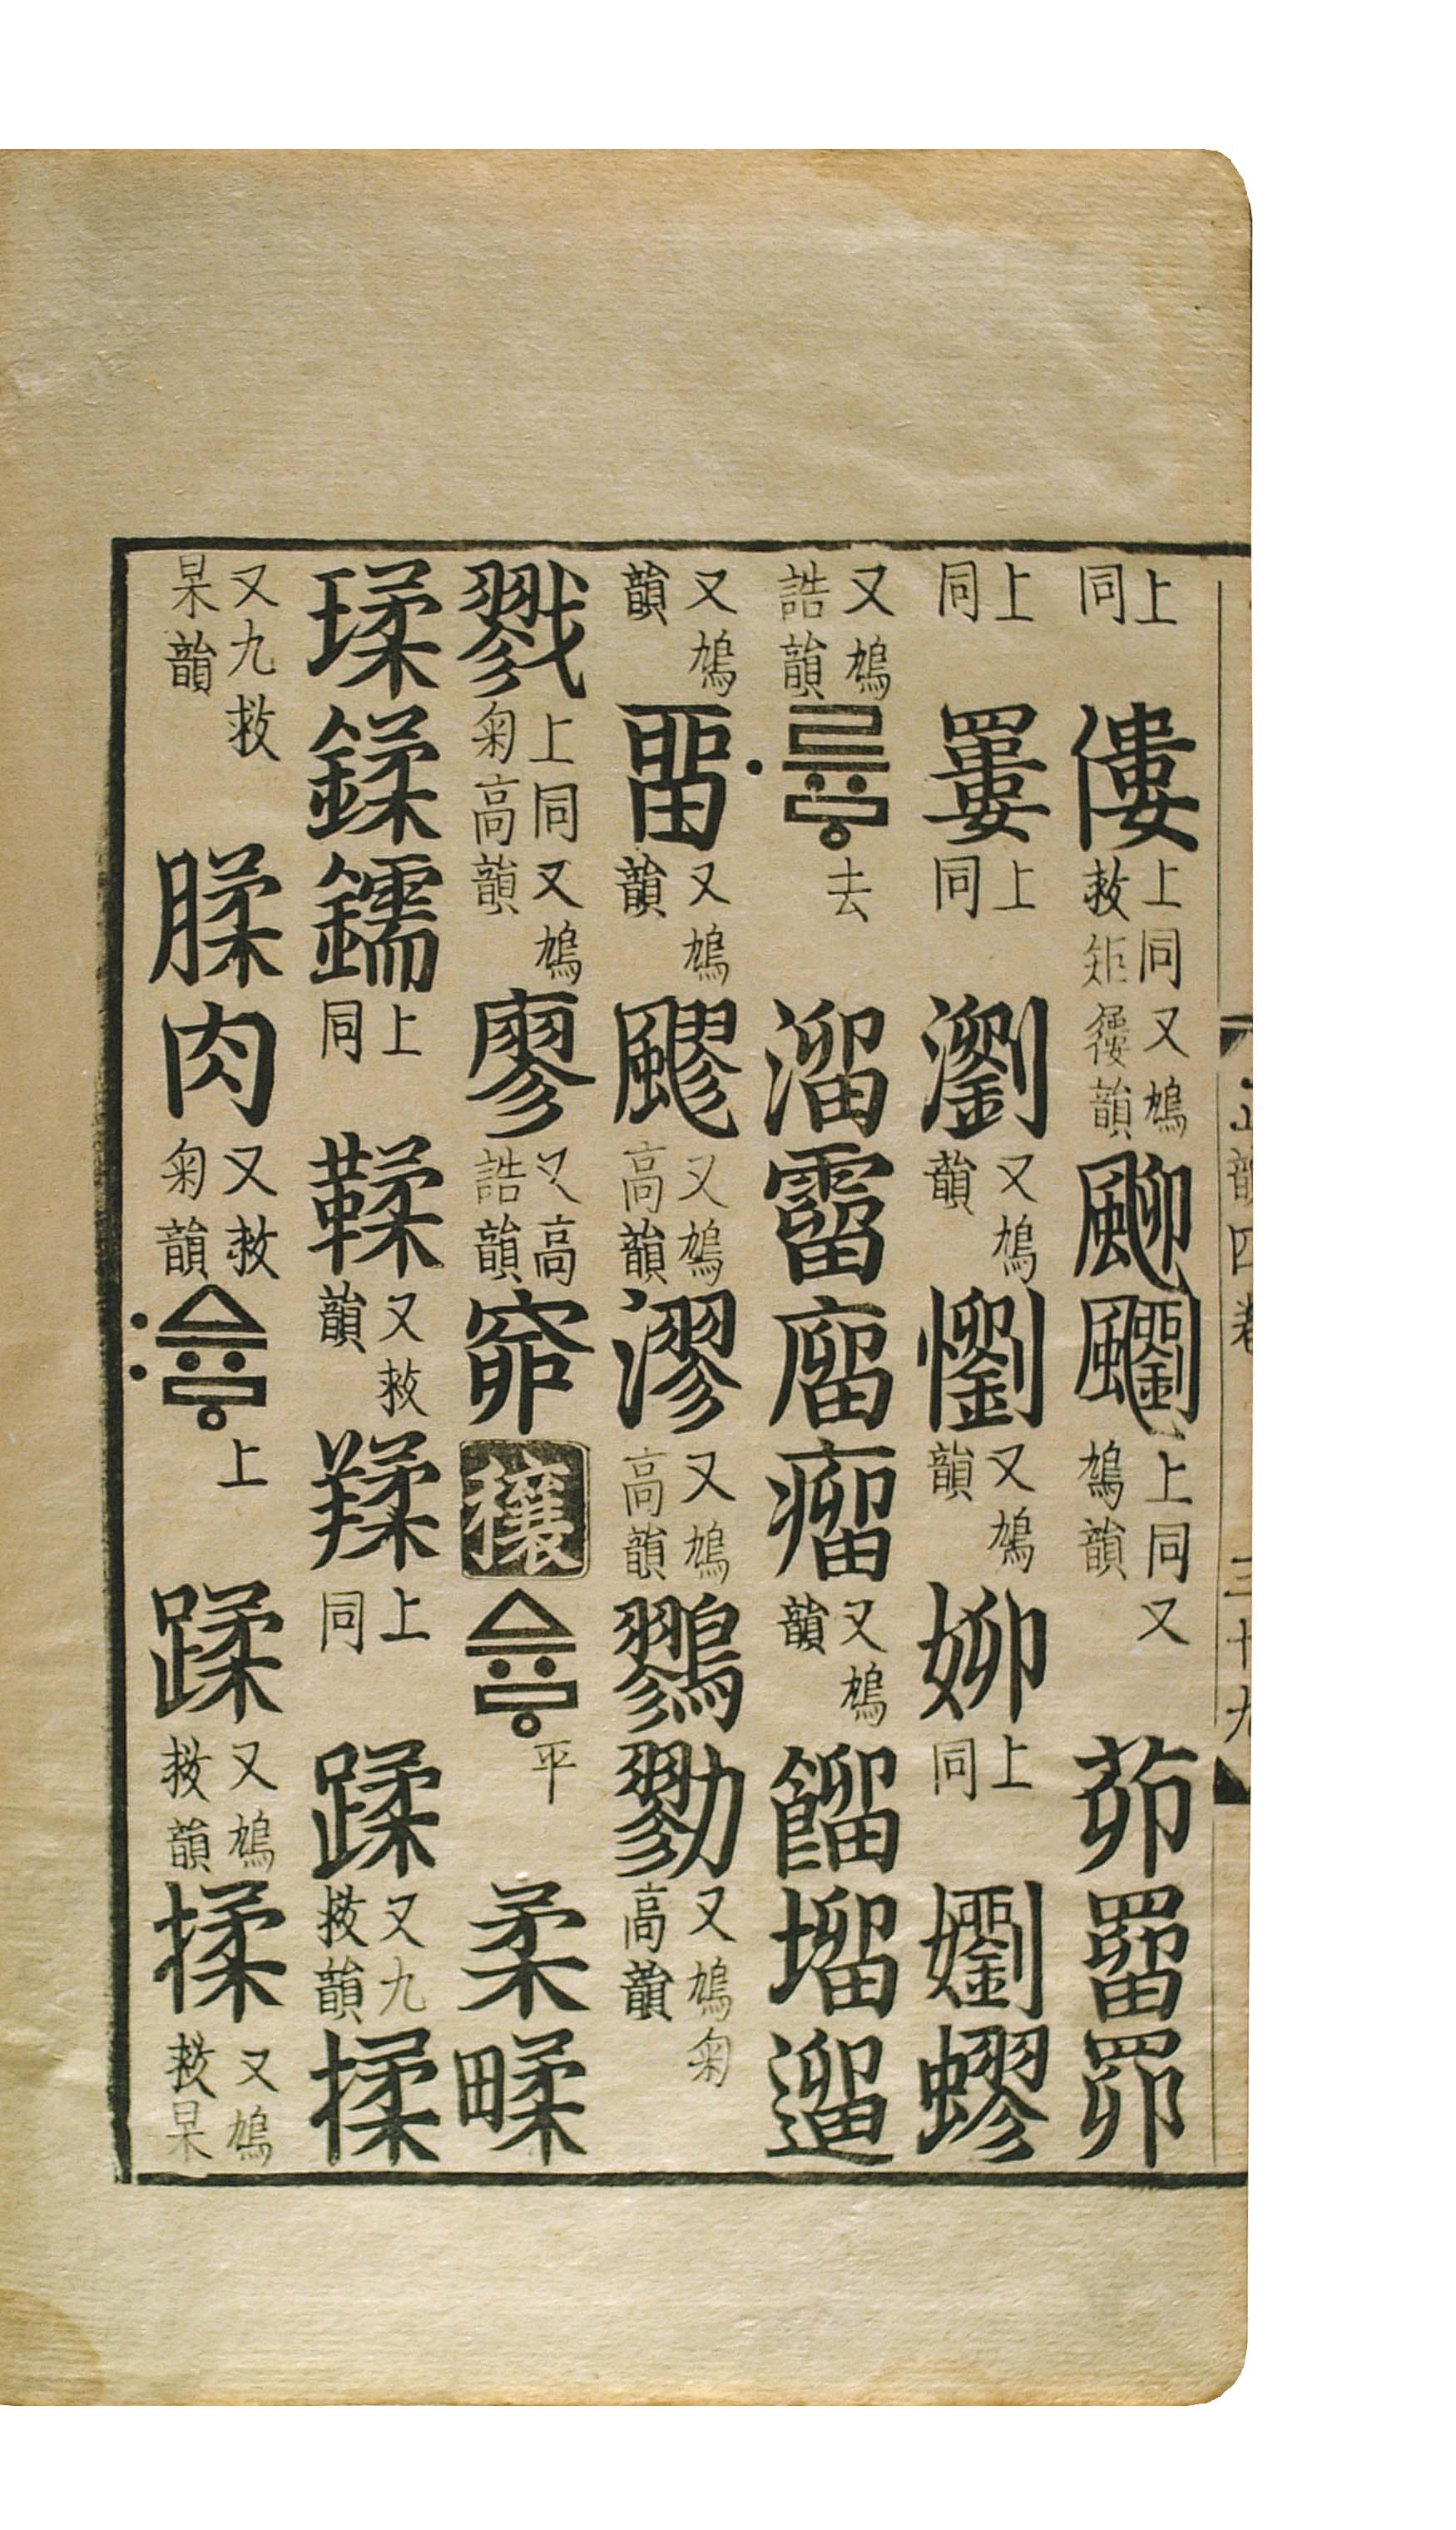 正韻四卷 三十九
上同 僂 上同又鳩救矩屨韻 飅 上同又鳩韻 茆 罶
上同 䍣 上同 瀏 又鳩韻 懰 又鳩韻 㚹 上同 嬼 蟉
又鳩誥韻 ·류ᇢ 去 溜 霤 廇 瘤 又鳩韻 餾 塯 遛
又鳩韻 畱 又鳩韻 飂 又鳩高韻 漻 又鳩高韻 鷚 勠 又鳩菊高韻
戮 上同又鳩菊高韻 廖 又高誥韻 窌 穰 ᅀᅲᇢ 平 柔 㽥
瑈 鍒 鑐 上同 鞣 又救韻 上同 蹂 又九救韻 揉
又九救杲韻 腬 肉 又救菊韻 :ᅀᅲᇢ 上 蹂 又鳩救韻 揉 又鳩救杲